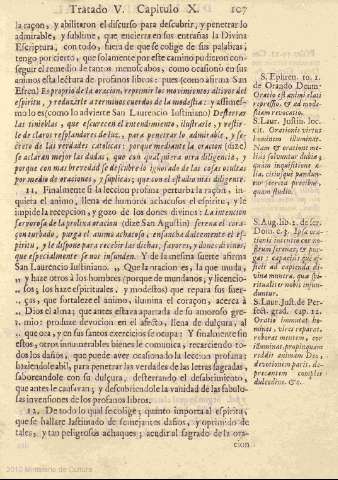 Tratado V. Capitulo X. 107
la raçon, y abilitaron el discurso para descubrir, y penetrar lo
admirable, y sublime, que encierra en sus entrañas la Divina
Escriptura, con todo, fuera de que se colige de sus palabras;
tengo por cierto, que solamente por este camino pudieron con-
seguir el remedio de tantos menoscabos, como ocasionò en sus
animos esta letura de profanos libros: pues (como afirma San
Efren) Es proprio de la oracion, reprimir los movimientos altivos del
espiritu, y reducirle a terminos cuerdos de la modestia: y assimes-
mo lo es (como lo advierte San Laurencio Iustiniano) Desterrar
las tinieblas, que escurecen el entendimiento, ilustrarle, y vestir-
le de claros resplandores de luz, para penetrar lo admirable, y se-
creto de las verdades catolicas: porque mediante la oracion (dize)
se aclaran mejor las dudas, que con qualquiera otra diligencia, y
porque con mas brevedad se descubre lo ignorado de las cosas ocultas
por medio de oraciones, y suplicas; que con el estudio mas diligente.
11. Finalmente si la leccion profana perturba la raçon, in-
quieta el animo, llena de humores achacosos el espiritu, y le
impide la recepcion, y gozo de los dones divinos: La intencion
fervorosa de la prolixa oracion (dize San Agustin) serena el coraçon
conturbado, purga el animo achacoso, ensancha dulcemente el es-
piritu, y le dispone para recebir las dichas, favores, y dones divinos,
que especialmente se nos infunden. Y de la mesma suerte afirma
San Laurencio Iustiniano. „ Que la oracion es, la que muda,
„ y haze otros à los hombres (porque de mundanos, y licencio-
„ sos, los haze espirituales, y modestos) que repara sus fuer-
„ ças, que fortaleze el animo, ilumina el coraçon, acerca à
„ Dios el alma; que antes estava apartada de su amoroso gre-
„ mio: produce devocion en el afecto, llena de dulçura, al
„ que ora, y en sus sanos exercicios se ocupa: Y finalmente sin
estos, otros innumerables bienes le comunica, recarciendo to-
dos los daños, que puede aver ocasionado la leccion profana;
haziendole abil, para penetrar las verdades de las letras sagradas,
saboreandole con su dulçura, desterrando el desabrimiento,
que antes le causavan; y descubriendole la vanidad de las fabulo-
sas invensiones de los profanos libros.
12. De todo lo qual se colige, quanto importa al espiritu,
que se hallare lastimado de semejantes daños, y oprimido de
tales, y tan peligrosos achaques; acudir al sagrado de la ora-
cion
S. Ephren. to. 1.
de Orando Deum
Oratio est animi elati
repressio, & ad mode-
stiam revocatio.
S. Laur. Justin. loc.
cit. Orationis virtus
hominem illuminat.
Nam & oratione me-
lius solvuntur dubia,
quam inquisitione a-
lia, citiusque pandun-
tur secreta precibus,
quam studio.
S. Aug. lib. 2. de ser.
Dom. c. 3. Ipsa
orationis intentio cor no-
strum serenat, & pur-
gat: capacius que ef-
ficit ad capienda di-
vina munera, quæ spi-
ritualiter nobis infun-
duntur.
S. Laur. Just. de Per-
fect. grad. cap. 12.
Oratio immutat ho-
mines, vires reparat,
roborat mentem, cor
illuminat, propinquam
reddit animam Deo,
devotionem parit, de-
precantem complet
dulcedine, &c.
2010 Ministerio de Cultura